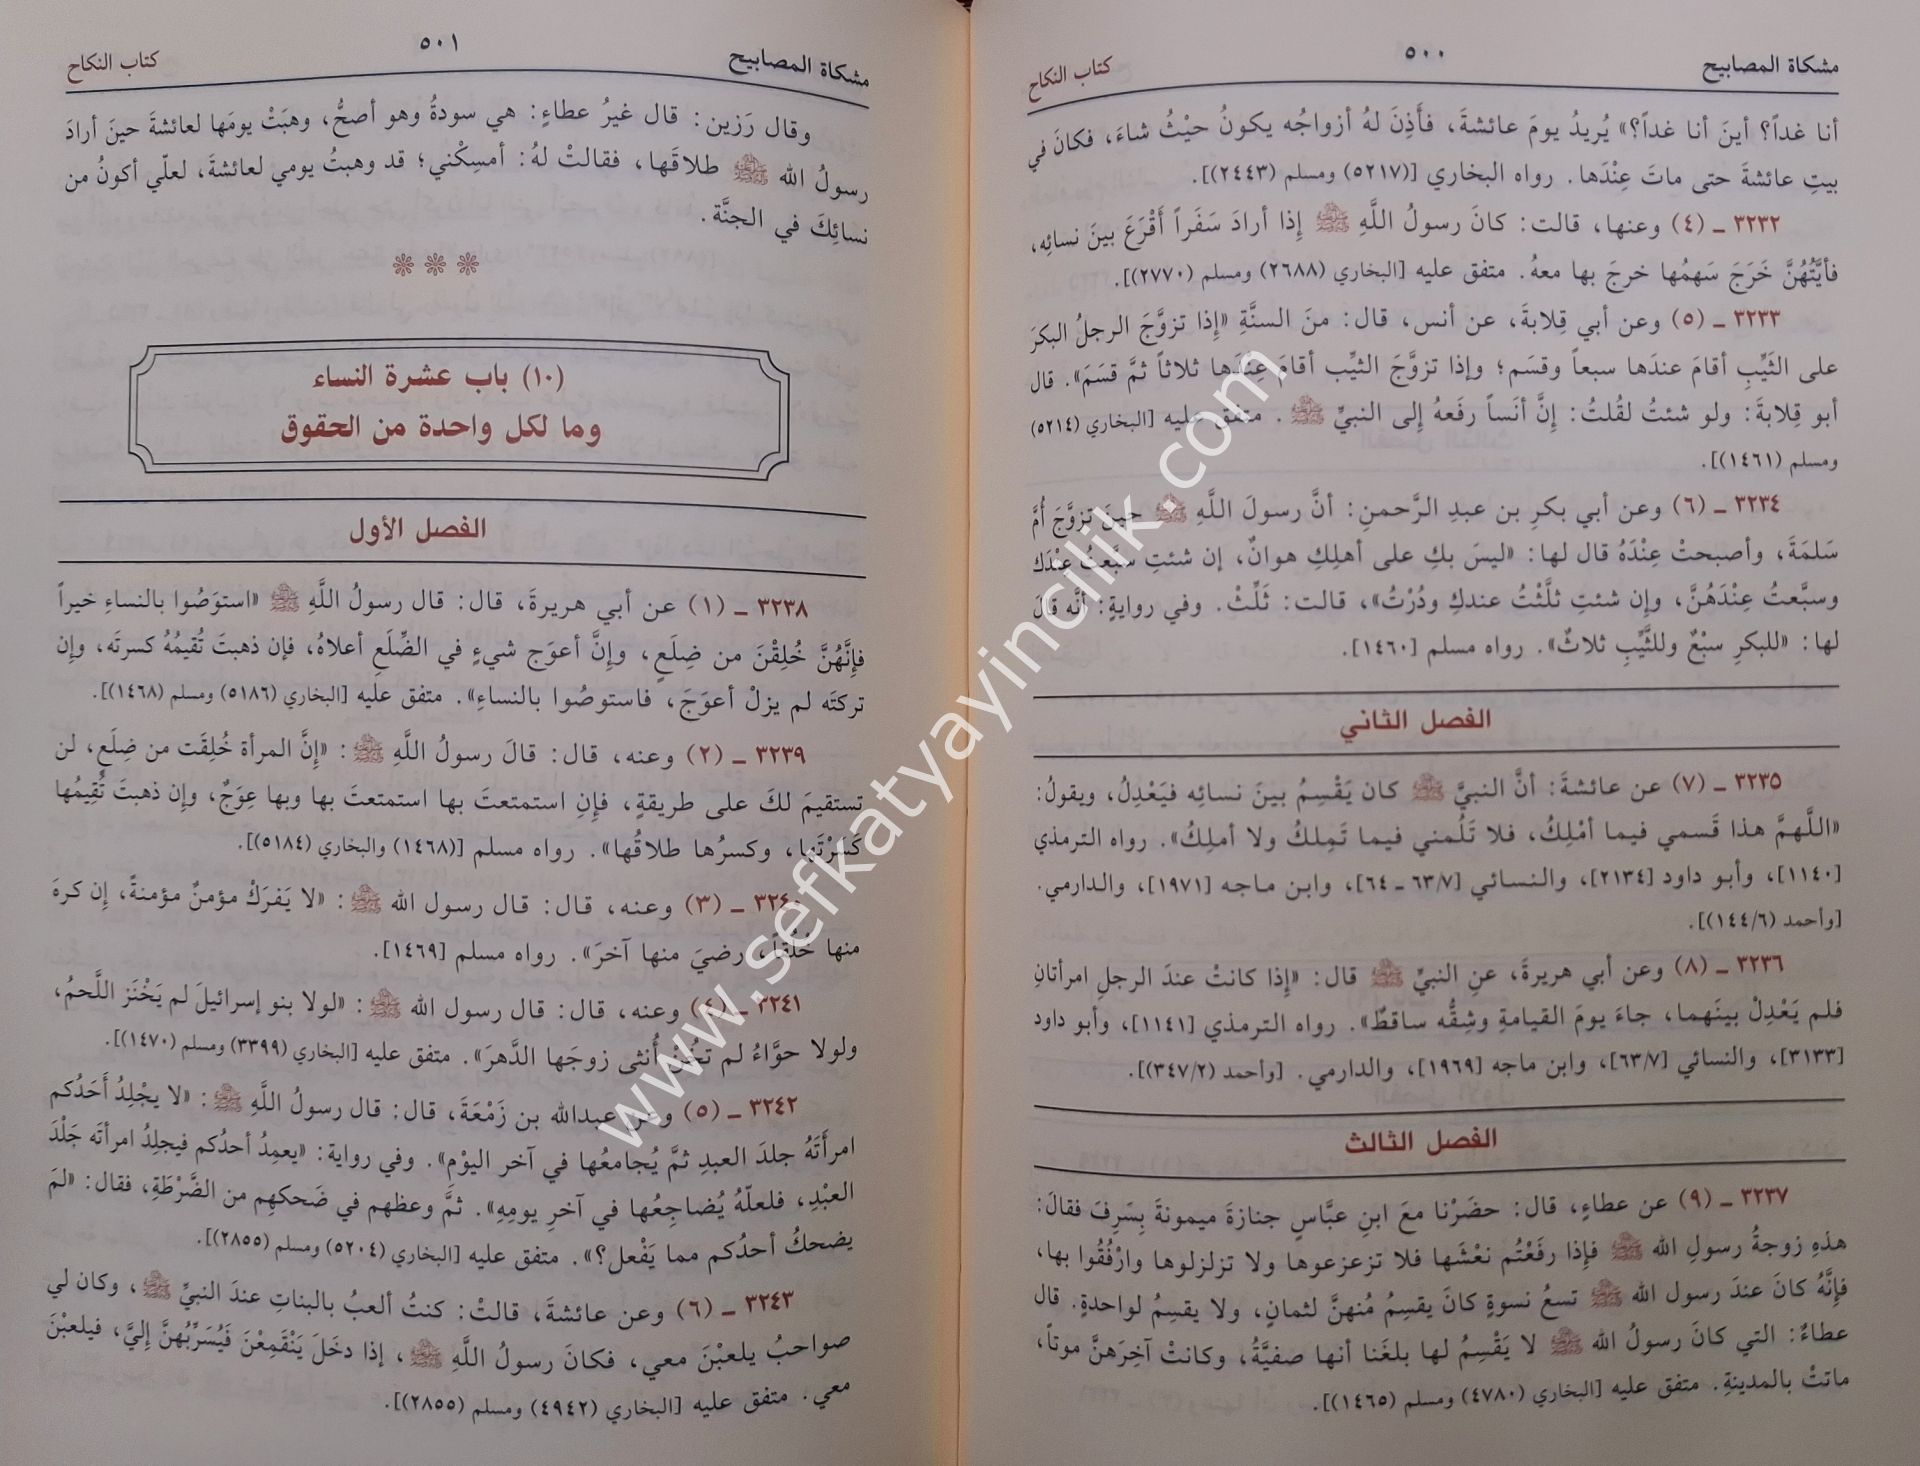 مشكاة المصابيح
٥٠٠
كتاب النكاح
أنا غداً؟ أينَ أنا غداً؟» يُريدُ يومَ عائشةَ، فأَذِنَ لهُ أزواجُه يكونُ حيْثُ شاءَ، فكانَ في
بيتِ عائشةَ حتى ماتَ عِنْدَها. رواه البخاري [(٥٢١٧) ومسلم (٢٤٤٣)].
٣٢٣٢ ـ (٤) وعنها، قالت: كانَ رسولُ اللَّهِ ﷺ إِذا أرادَ سَفَراً أَقْرَعَ بينَ نسائِه،
فأيَّتُهُنَّ خَرَجَ سَهمُها خرجَ بها معهُ. متفق عليه [البخاري (٢٦٨٨) ومسلم (٢٧٧٠)].
٣٢٣٣ ـ (٥) وعن أبي قِلابةَ، عن أنس، قال: منَ السنَّةِ «إِذا تزوَّجَ الرجلُ البكرَ
على الثَيِّبِ أقامَ عندَها سبعاً وقسَم؛ وإذا تزوَّجَ الثيِّب أقامَ عِنْدَها ثلاثاً ثمَّ قسَمَ». قال
أبو قِلابةَ: ولو شئتُ لقُلتُ: إِنَّ أنَساً رفَعهُ إِلى النبيِّ ﷺ. متفق عليه [البخاري (٥٢١٤)
ومسلم (١٤٦١)].
٣٢٣٤ ـ (٦) وعن أبي بكرِ بن عبدِ الرَّحمنِ: أنَّ رسولَ اللَّهِ ﷺ حينَ تزوَّجَ أُمَّ
سَلمَةَ، وأصبحتْ عِنْدَهُ قال لها: «ليسَ بكِ على أهلِكِ هوانٌ، إن شئتِ سبَّعتُ عِنْدَك
وسبَّعتُ عِنْدَهُنَّ، وإن شئتِ ثلَّثْتُ عندكِ ودُرْتُ»، قالت: ثَلِّثْ. وفي روايةٍ: أنَّه قالَ
لها: «للبكرِ سبْعٌ وللثَّيِّبِ ثلاثٌ». رواه مسلم [١٤٦٠].
الفصل الثاني
٣٢٣٥ ـ (٧) عن عائشةَ: أنَّ النبيَّ ﷺ كان يَقْسِمُ بينَ نسائِه فيَعْدِلُ، ويقولُ:
«اللَّهمَّ هذا قَسمي فيما أمْلِكُ، فلا تَلُمني فيما تَملِكُ ولا أملِكُ». رواه الترمذي
[١١٤٠]، وأبو داود [٢١٣٤]، والنسائي [٦٣/٧ ـ ٦٤]، وابن ماجه [١٩٧١]، والدارمي.
[وأحمد (١٤٤/٦)].
٣٢٣٦ ـ (٨) وعن أبي هريرةَ، عنِ النبيِّ ﷺ قال: «إِذا كانتْ عندَ الرجلِ امرأتانِ
فلم يَعْدِلْ بينَهما، جاءَ يومَ القيامةِ وشِقُّه ساقطٌ». رواه الترمذي [١١٤١]، وأبو داود
[٣١٣٣]، والنسائي [٦٣/٧]، وابن ماجه [١٩٦٩]، والدارمي. [وأحمد (٣٤٧/٢)].
الفصل الثالث
٣٢٣٧ ـ (٩) عن عطاءٍ، قال: حضَرْنا معَ ابنِ عبَّاسٍ جنازةَ ميمونةَ بِسَرِفَ فقالَ:
هذهِ زوجةُ رسولِ الله ﷺ فإِذا رفَعْتُم نعْشَها فلا تزعزعوها ولا تزلزلوها وارْفُقُوا بها،
فإِنَّهُ كانَ عندَ رسول الله ﷺ تسعُ نسوةٍ كانَ يقسِمُ مُنهنَّ لثمانٍ، ولا يقسِمُ لواحدةٍ. قال
عطاءٌ: التي كانَ رسولُ الله ﷺ لا يَقْسِمُ لها بلغَنا أنها صفيَّةُ، وكانتْ آخِرَهنَّ موتاً،
ماتتْ بالمدينةِ. متفق عليه [البخاري (٤٧٨٠) ومسلم (١٤٦٥)].
مشكاة المصابيح
٥٠١
كتاب النكاح
وقال رَزين: قال غيرُ عطاءٍ: هي سودةُ وهو أصحُّ، وهبَتْ يومَها لعائشةَ حينَ أرادَ
رسولُ الله ﷺ طلاقَها، فقالتْ لهُ: أمسِكْني؛ قد وهبتُ يومي لعائشةَ، لعلّي أكونُ من
نسائِكَ في الجنَّة.
(١٠) باب عشرة النساء
وما لكل واحدة من الحقوق
الفصل الأول
٣٢٣٨ ـ (١) عن أبي هريرةَ، قال: قال رسولُ اللَّهِ ﷺ «استوَصُوا بالنساءِ خيراً
فإِنَّهُنَّ خُلِقْنَ من ضِلَعٍ، وإِنَّ أعوَج شيءٍ في الضِّلَعِ أعلاهُ، فإن ذهبتَ تُقيمُهُ كسرتَه، وإِن
تركتَه لم يزلْ أعوَجَ، فاستوصُوا بالنساءِ». متفق عليه [البخاري (٥١٨٦) ومسلم (١٤٦٨)].
٣٢٣٩ ـ (٢) وعنه، قال: قالَ رسولُ اللَّهِ ﷺ: «إِنَّ المرأة خُلِقَت من ضِلَعٍ، لن
تستقيمَ لكَ على طريقةٍ، فإِنِ استمتعتَ بها استمتعتَ بها وبها عِوَجٌ، وإِن ذهبتَ تُقِيمُها
كَسَرْتَها، وكسرُها طلاقُها». رواه مسلم [(١٤٦٨) والبخاري (٥١٨٤)].
٣٢٤٠ ـ (٣) وعنه، قال: قال رسول الله ﷺ: «لا يَفرَكْ مؤمنٌ مؤمنةً، إِن كرهَ
منها خُلُقاً، رضيَ منها آخرَ». رواه مسلم [١٤٦٩].
٣٢٤١ ـ (٤) وعنه، قال: قال رسول الله ﷺ: «لولا بنو إسرائيلَ لم يَخْنَز اللَّحمُ،
ولولا حوَّاءُ لم تخُنْ أُنثى زوجَها الدَّهرَ». متفق عليه [البخاري (٣٣٩٩) ومسلم (١٤٧٠)].
٣٢٤٢ ـ (٥) وعن عبدالله بن زَمْعَةَ، قال: قال رسولُ اللَّهِ ﷺ: «لا يجْلِدُ أَحَدُكم
امرأتَهُ جلدَ العبدِ ثمَّ يُجامعُها في آخر اليوْمِ». وفي رواية: «يعمِدُ أحدُكم فيجلِدُ امرأتَه جَلْدَ
العبْدِ، فلعلّهُ يُضاجِعُها في آخرِ يومِهِ». ثمَّ وعظهم في ضَحكهِم من الضَّرْطَةِ، فقال: «لمَ
يضحكُ أحدُكم مما يَفْعل؟». متفق عليه [البخاري (٥٢٠٤) ومسلم (٢٨٥٥)].
٣٢٤٣ ـ (٦) وعن عائشةَ، قالتْ: كنتُ ألعبُ بالبناتِ عندَ النبيِّ ﷺ، وكان لي
صواحبُ يلعبْنَ معي، فكانَ رسولُ اللَّهِ ﷺ، إذا دخَلَ يَنْقَمِعْنَ فَيُسَرِّبُهنَّ إِليَّ، فيلعبْنَ
معي. متفق عليه [البخاري (٤٩٤٢) ومسلم (٢٨٥٥)].
www.sefkatyayincilik.com